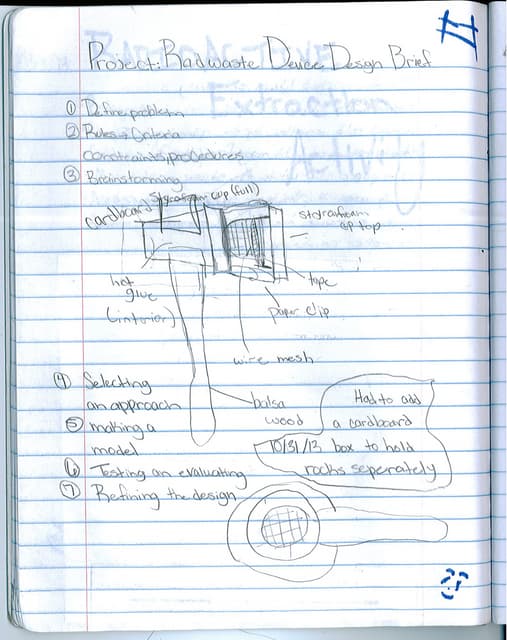 Project: Radwaste Device Design Brief
① Define problem
② Rules + Criteria
constraints, procedures
③ Brainstorming
styrafoam cup (full)
cardboard
styrafoam
cup top
hot
glue
(interior)
tape
paper clip
wire mesh
④ Selecting
an approach
⑤ making a
model
⑥ Testing an evaluating
⑦ Refining the design
balsa
wood
Had to add
a cardboard
10/31/13 box to hold
rocks seperately